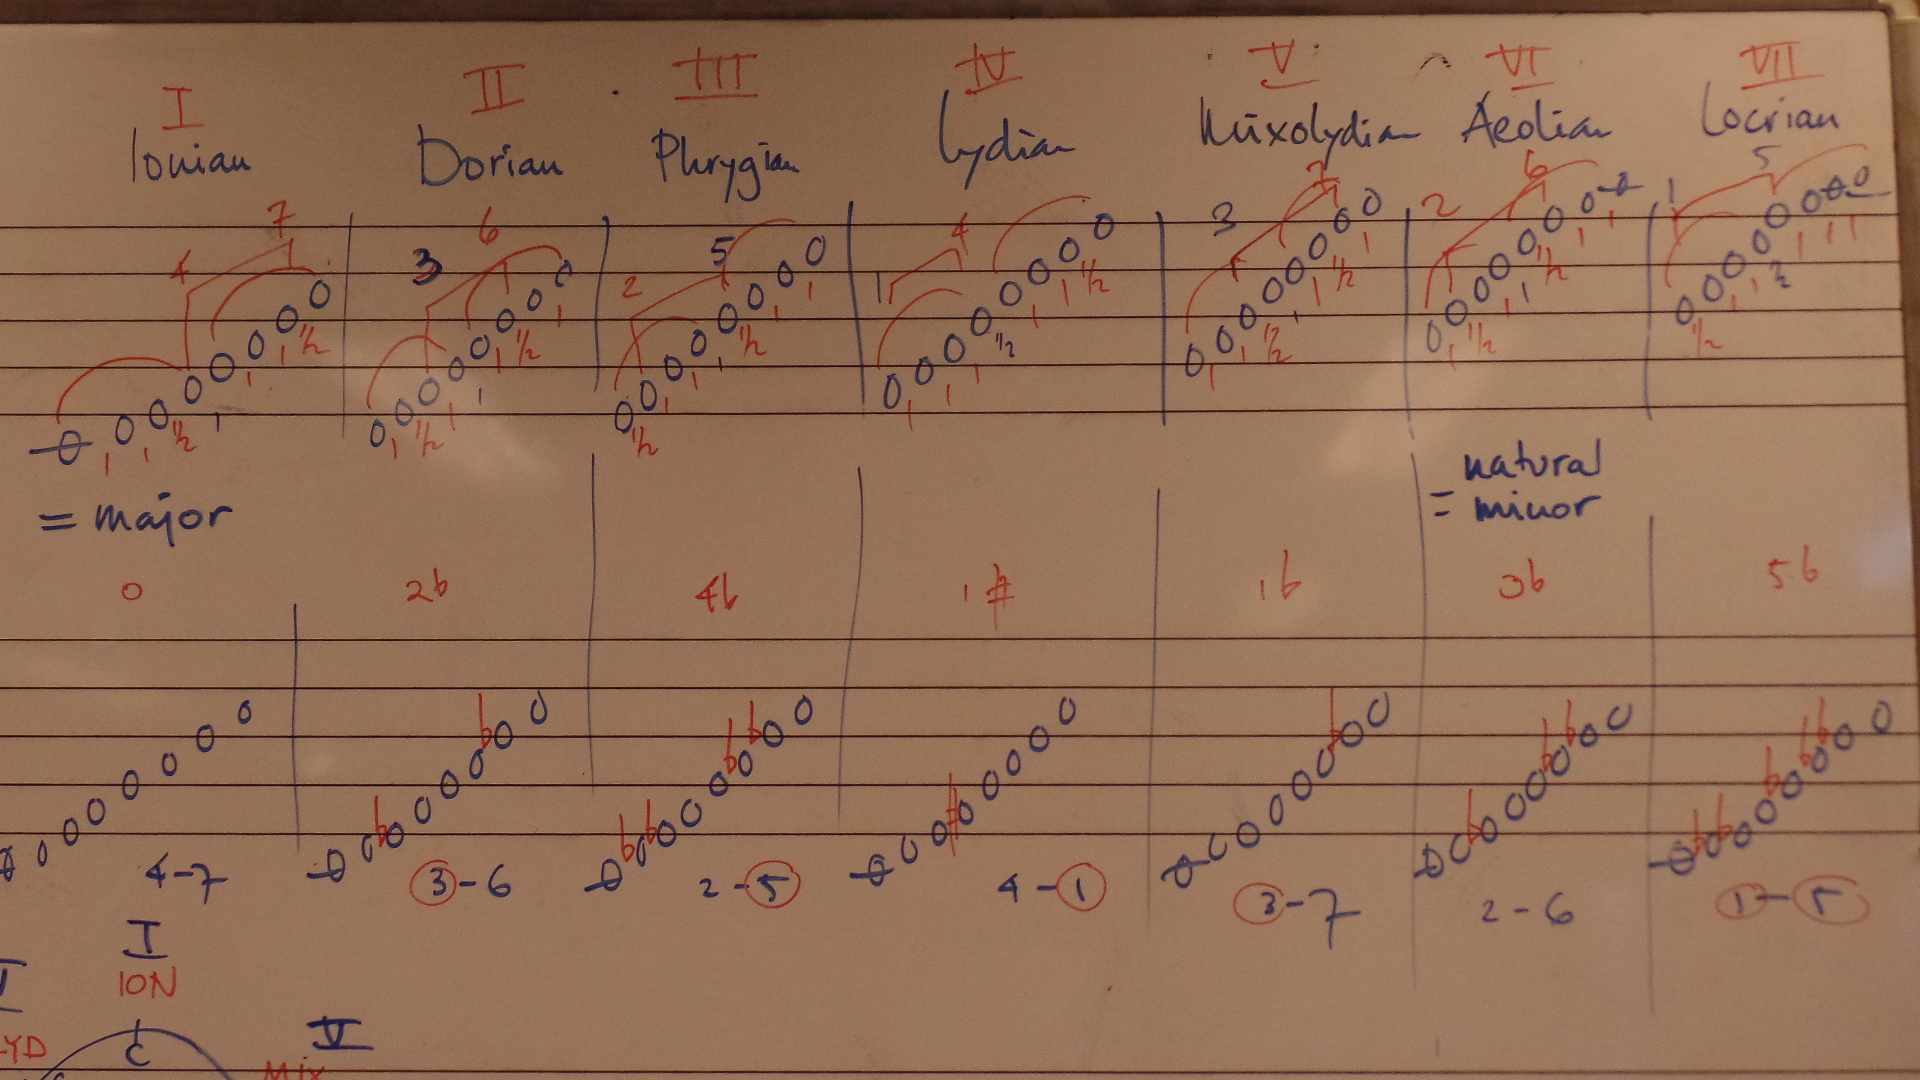 I II III IV V VI VII
Ionian Dorian Phrygian Lydian Mixolydian Aeolian Locrian
4 7 3 6 2 5 1 4 3 7 2 6 1 5
1 1 ½ 1 1 1 ½
1 ½ 1 1 1 ½ 1
½ 1 1 1 ½ 1 1
1 1 1 ½ 1 1 ½
1 1 ½ 1 1 ½ 1
1 ½ 1 1 ½ 1 1
½ 1 1 ½ 1 1 1
= major
= natural
minor
0 2b 4b 1# 1b 3b 5b
4-7 3-6 2-5 4-1 3-7 2-6 1-5
I
ION
V
YD
C
MIX